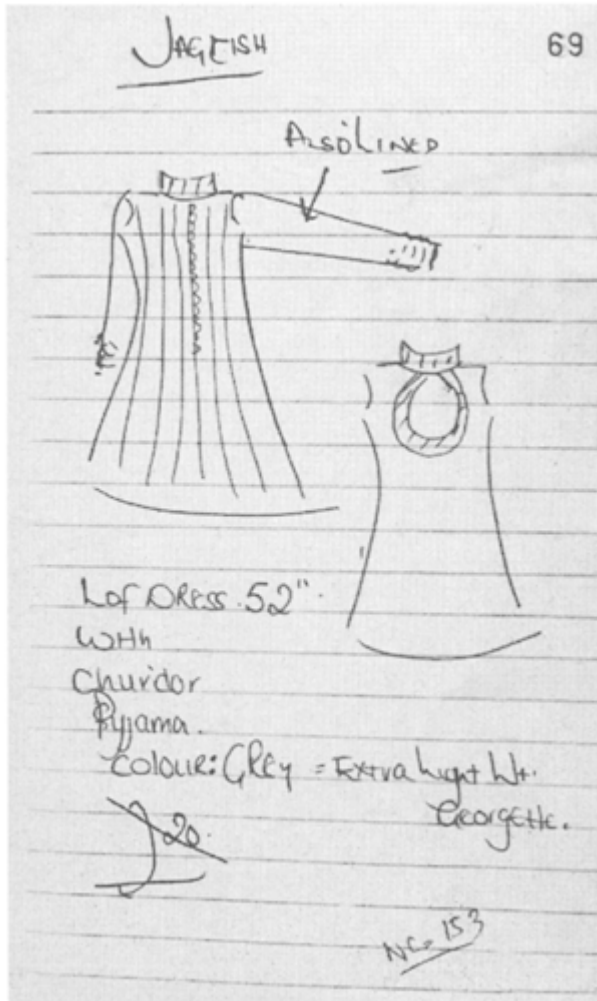 JAGEISH
69
ALSO LINED
L of DRESS. 52".
WITH
Churidor
Pyjama.
COLOUR: GREY = Extra Light Wt.
Georgette.
20.
NC-153